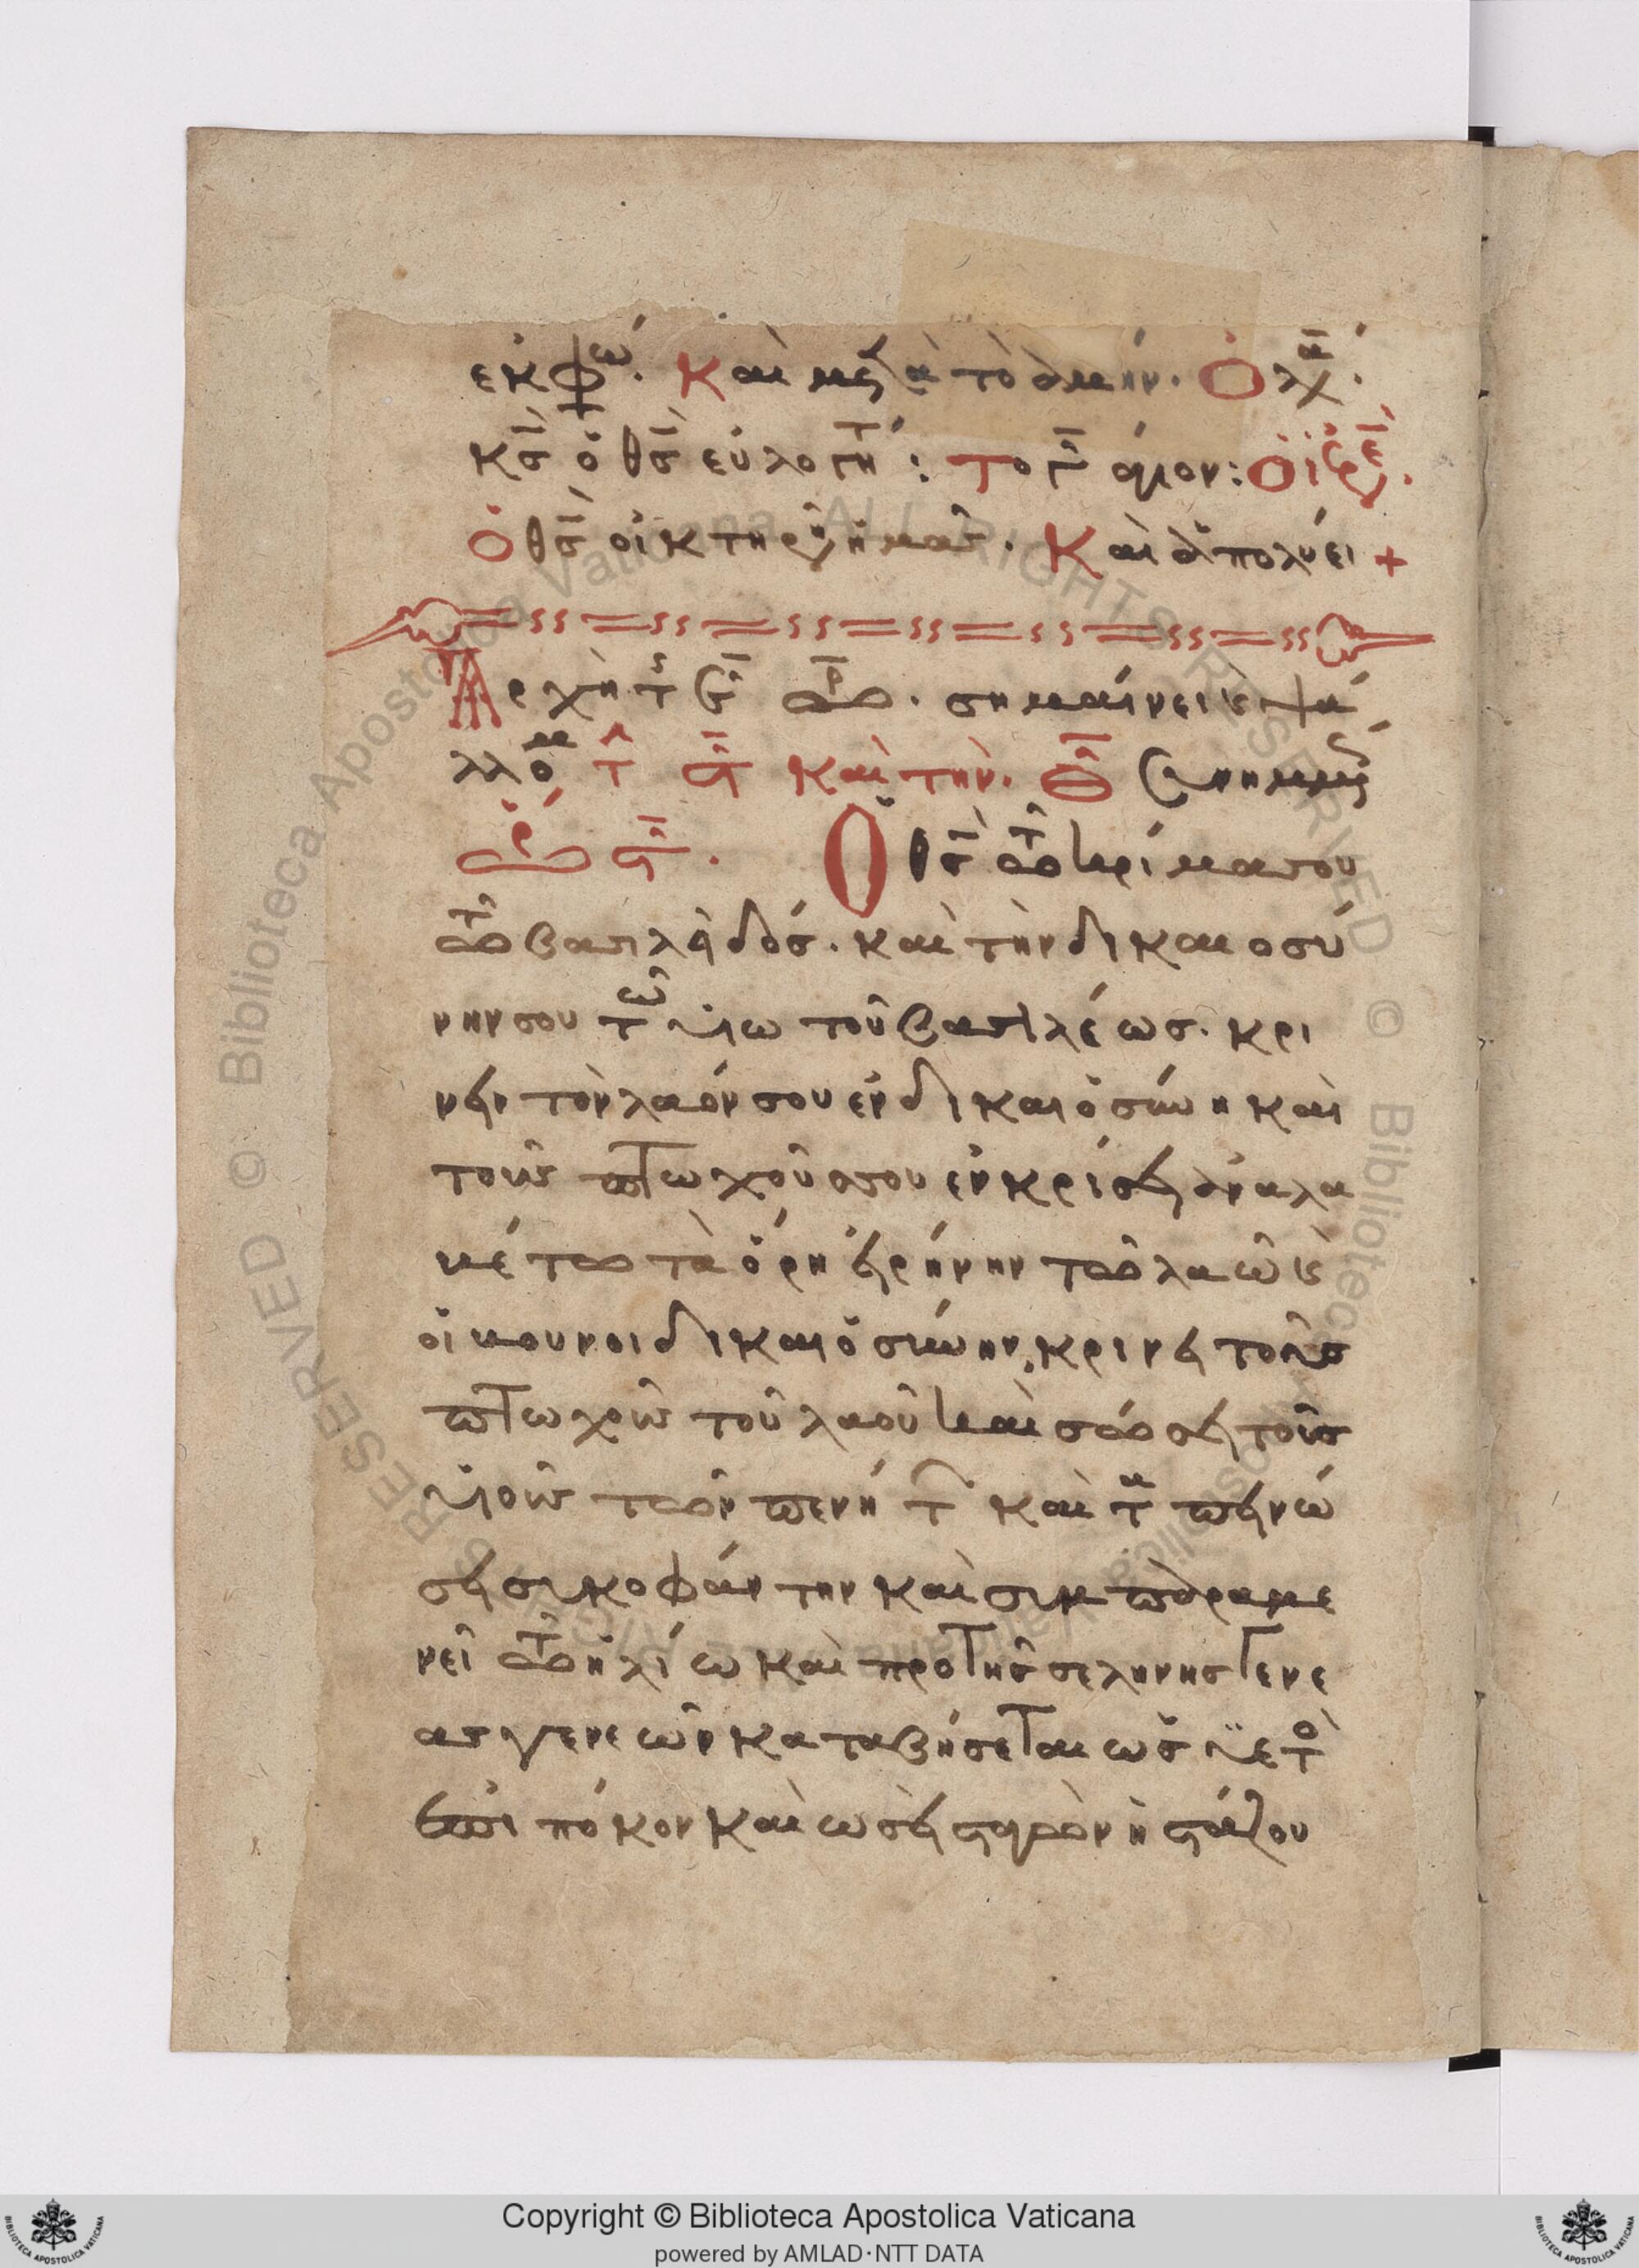 εκφω. Καὶ μετὰ τὸ ἀμήν. Ὁ λχ.
κς ὁ θς εὐλογητ: Το γ ἅγιον: Ὁ ἱερε.
Ὁ θς οἰκτηρη ἡμας. Καὶ ἀπολύει +
Αρχὴ τ ς ωρ. σημαίνει κ ψά
λλομ τ γ καὶ τὴν. θ συνημμέ
ωρ γ. Ὁ θς τω κρίμα σου
τω βασιλεῖ δός. καὶ τὴν δικαιοσύ
νην σου τω υιω τοῦ βασιλέως. κρι
νειν τὸν λαόν σου ἐν δικαιοσύνη καὶ
τοὺς πτωχούς σου ἐν κρίσει ἀναλα
βέτω τὰ ὄρη εἰρήνην τῶ λαῶ κ
οἱ βουνοὶ δικαιοσύνην. κρινεῖ τοὺς
πτωχοὺς τοῦ λαοῦ καὶ σώσει τοὺς
υἱοὺς τῶν πενήτ καὶ τα πεινώ
σει συκοφάντην καὶ συμπαραμε
νεῖ τω ἡλίω καὶ πρὸ τῆς σεληνης γενε
ας γενεῶν καταβήσεται ὡς ὑετὸ
ἐπι πόκον καὶ ὡσεὶ σταγὼν ἡ στάζου
Copyright © Biblioteca Apostolica Vaticana
powered by AMLAD·NTT DATA